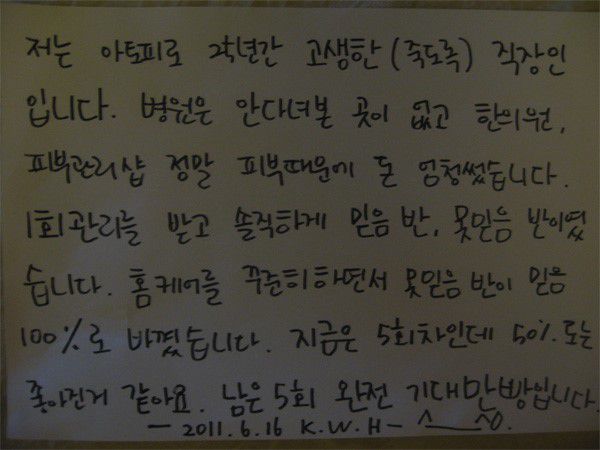 저는 아토피로 2학년간 고생한 (죽도록) 직장인
입니다. 병원은 안다녀본 곳이 없고 한의원,
피부관리샵 정말 피부때문에 돈 엄청썼습니다.
1회관리를 받고 솔직하게 믿음 반, 못믿음 반이였
습니다. 홈케어를 꾸준히하면서 못믿음 반이 믿음
100%로 바꼈습니다. 지금은 5회차인데 50%.도는
좋아진거 같아요. 남은 5회 완전 기대만빵입니다.
- 2011.6.16 K.W.H -